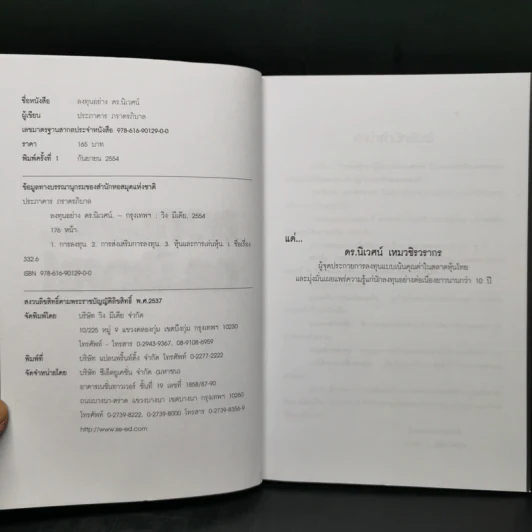 ชื่อหนังสือ : ลงทุนอย่าง ดร.นิเวศน์
ผู้เขียน : ประภาคาร ภราดรภิบาล
เลขมาตรฐานสากลประจำหนังสือ 978-616-90129-0-0
ราคา : 165 บาท
พิมพ์ครั้งที่ 1 : กันยายน 2554
ข้อมูลทางบรรณานุกรมของสำนักหอสมุดแห่งชาติ
ประภาคาร ภราดรภิบาล
ลงทุนอย่าง ดร.นิเวศน์. – กรุงเทพฯ : วิง มีเดีย, 2554
176 หน้า.
1. การลงทุน. 2. การส่งเสริมการลงทุน. 3. หุ้นและการเล่นหุ้น. I ชื่อเรื่อง
332.6
ISBN 978-616-90129-0-0
สงวนลิขสิทธิ์ตามพระราชบัญญัติลิขสิทธิ์ พ.ศ.2537
จัดพิมพ์โดย : บริษัท วิง มีเดีย จำกัด
10/225 หมู่ 9 แขวงคลองกุ่ม เขตบึงกุ่ม กรุงเทพฯ 10230
โทรศัพท์ - โทรสาร 0-2943-9367, 08-9108-6959
พิมพ์ที่ : บริษัท แปลนพริ้นท์ติ้ง จำกัด โทรศัพท์ 0-2277-2222
จัดจำหน่ายโดย : บริษัท ซีเอ็ดยูเคชั่น จำกัด (มหาชน)
อาคารเนชั่นทาวเวอร์ ชั้นที่ 19 เลขที่ 1858/87-90
ถนนบางนา-ตราด แขวงบางนา เขตบางนา กรุงเทพฯ 10260
โทรศัพท์ 0-2739-8222, 0-2739-8000 โทรสาร 0-2739-8356-9
http://www.se-ed.com
แด่...
ดร.นิเวศน์ เหมวชิรวรากร
ผู้จุดประกายการลงทุนแบบเน้นคุณค่าในตลาดหุ้นไทย
และมุ่งมั่นเผยแพร่ความรู้แก่นักลงทุนอย่างต่อเนื่องยาวนานกว่า 10 ปี